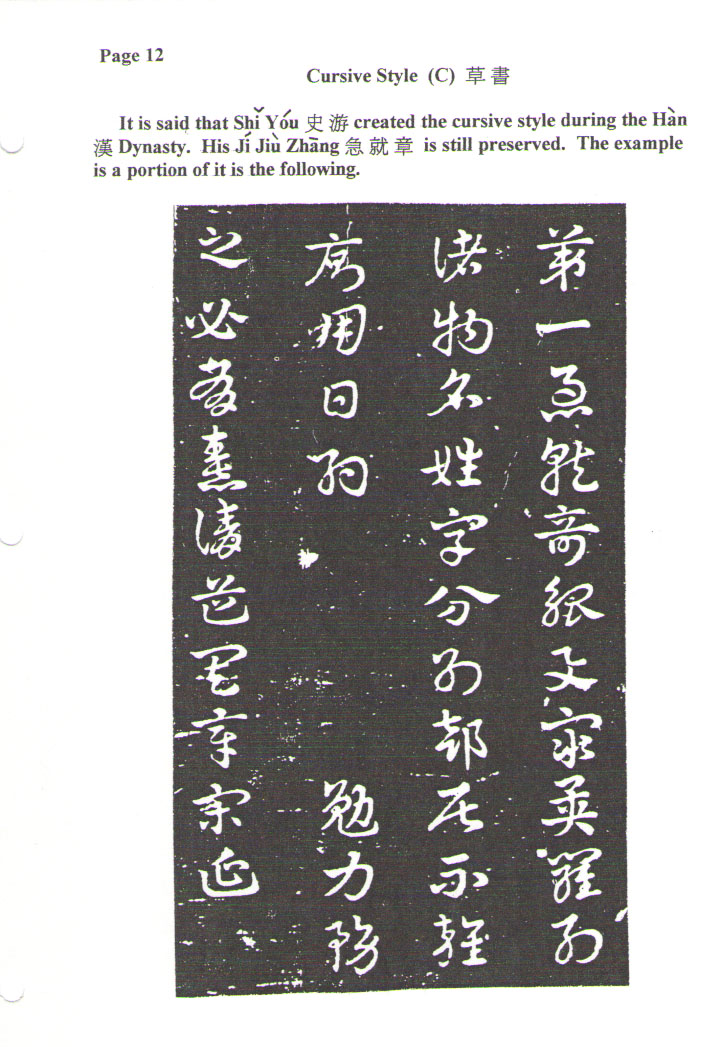 Page 12
Cursive Style (C) 草書
It is said that Shǐ Yóu 史游 created the cursive style during the Hàn
漢 Dynasty. His Jí Jiù Zhāng 急就章 is still preserved. The example
is a portion of it is the following.
第一急就奇觚與眾異羅列
諸物名姓字分別部居不雜
廁用日約 勉力務
之必有憙請道其章宋延